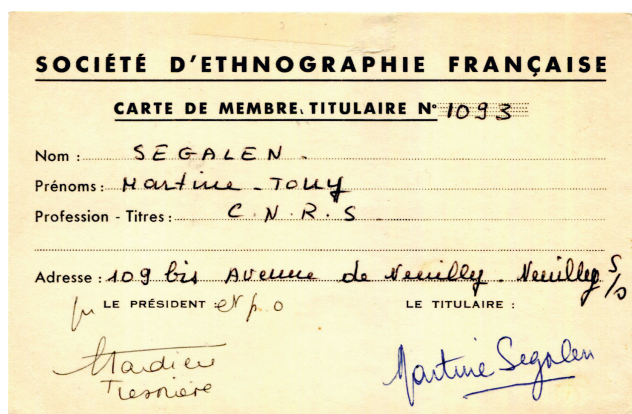 SOCIÉTÉ D'ETHNOGRAPHIE FRANÇAISE
CARTE DE MEMBRE TITULAIRE N° 1093
Nom : SEGALEN -
Prénoms : Martine - TOUY
Profession - Titres : C.N.R.S
Adresse : 109 bis Avenue de Neuilly. Neuilly S/S
LE PRÉSIDENT : et p.o LE TITULAIRE :
Martine Segalen
Tardieu